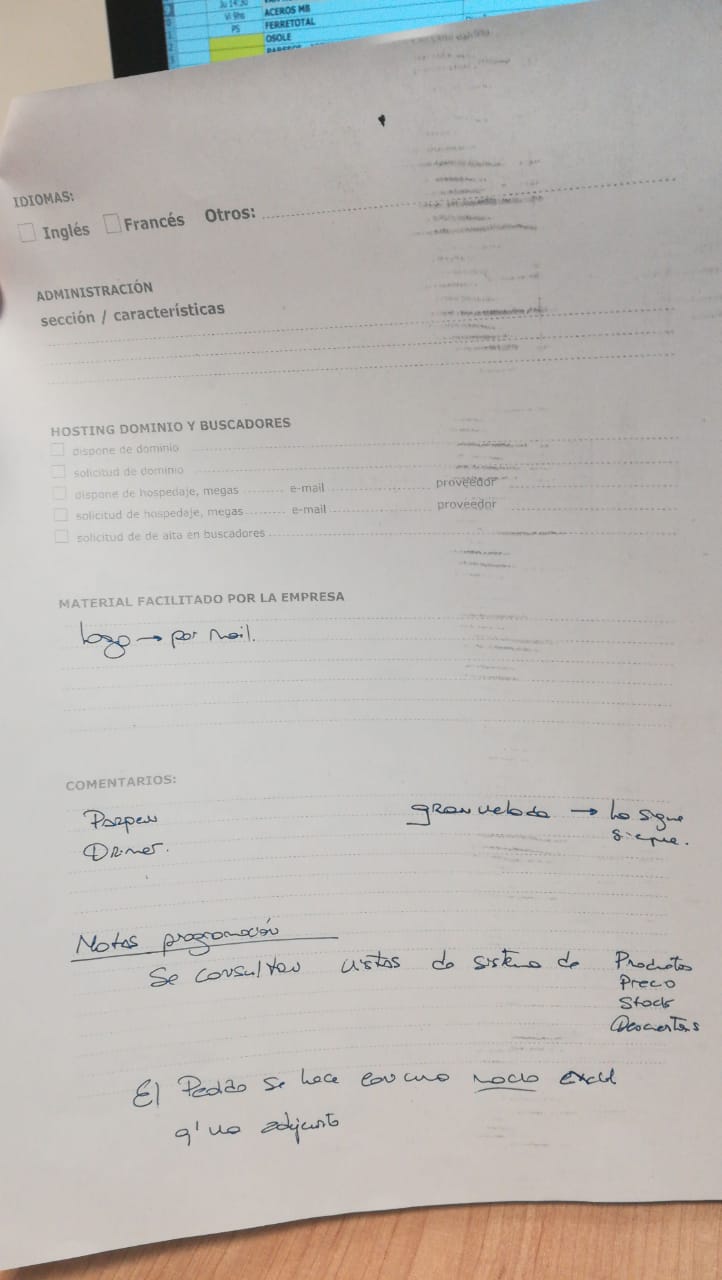 Ju 14:30
Vi 9hs
ACEROS MB
PS
FERRETOTAL
OSOLE
IDIOMAS:
Inglés Francés Otros:
ADMINISTRACIÓN
sección / características
HOSTING DOMINIO Y BUSCADORES
dispone de dominio
solicitud de dominio
dispone de hospedaje, megas e-mail proveedor
solicitud de hospedaje, megas e-mail proveedor
solicitud de de alta en buscadores
MATERIAL FACILITADO POR LA EMPRESA
logo → por mail.
COMENTARIOS:
granvelada → Lo sigue
Notas programación
Se consultan vistas de sistema de Productos
Precio
Stock
Descuentos
El Pedido se hace como nodo excel
q' va adjunto